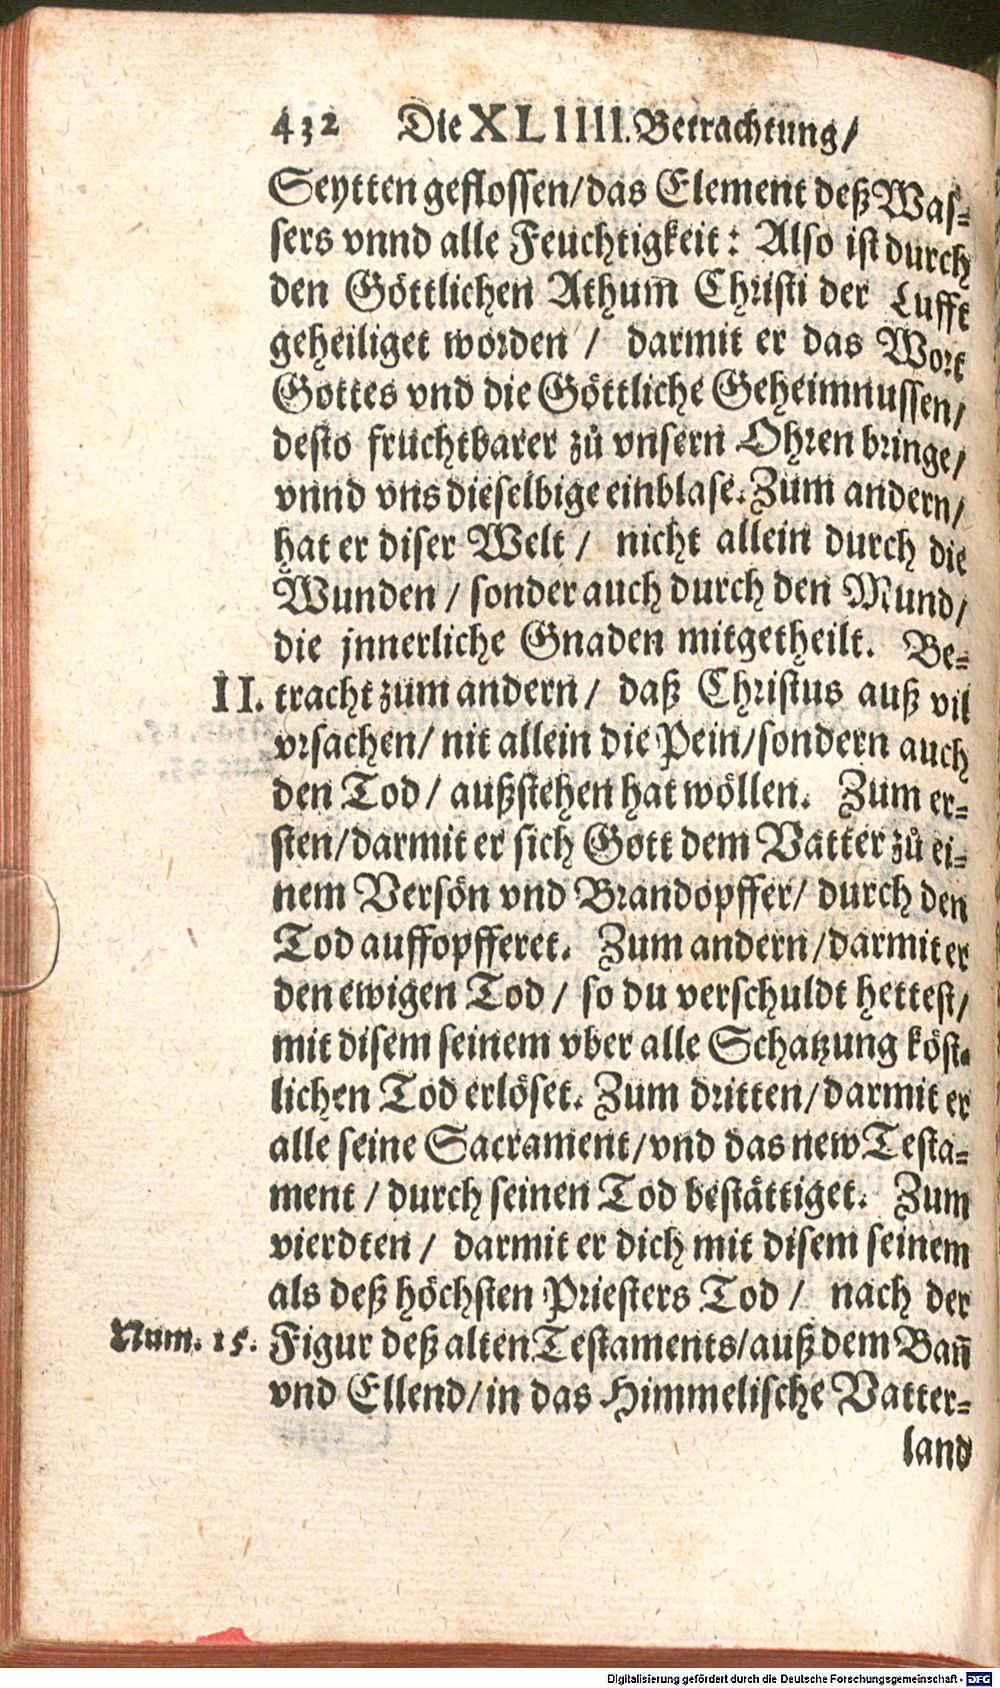 432 Die XLIIII. Betrachtung/
Seytten geflossen/das Element deß Was-
sers vnnd alle Feuchtigkeit: Also ist durch
den Göttlichen Athum̄ Christi der Lufft
geheiliget worden / darmit er das Wort
Gottes vnd die Göttliche Geheimnussen/
desto fruchtbarer zů vnsern Ohren bringe/
vnnd vns dieselbige einblase. Zum andern/
hat er diser Welt / nicht allein durch die
Wunden / sonder auch durch den Mund/
die jnnerliche Gnaden mitgetheilt. Be-
II. tracht zum andern / daß Christus auß vil
vrsachen/ nit allein die Pein/sondern auch
den Tod / außstehen hat wöllen. Zum er-
sten/darmit er sich Gott dem Vatter zů ei-
nem Versön vnd Brandopffer/ durch den
Tod auffopfferet. Zum andern /darmit er
den ewigen Tod / so du verschuldt hettest/
mit disem seinem vber alle Schatzung köst-
lichen Tod erlöset. Zum dritten/darmit er
alle seine Sacrament/vnd das new Testa-
ment / durch seinen Tod bestättiget. Zum
vierdten / darmit er dich mit disem seinem
als deß höchsten Priesters Tod / nach der
Num. 15. Figur deß alten Testaments/auß dem Bañ
vnd Ellend/in das Himmelische Vatter-
land
Digitalisierung gefördert durch die Deutsche Forschungsgemeinschaft - DFG